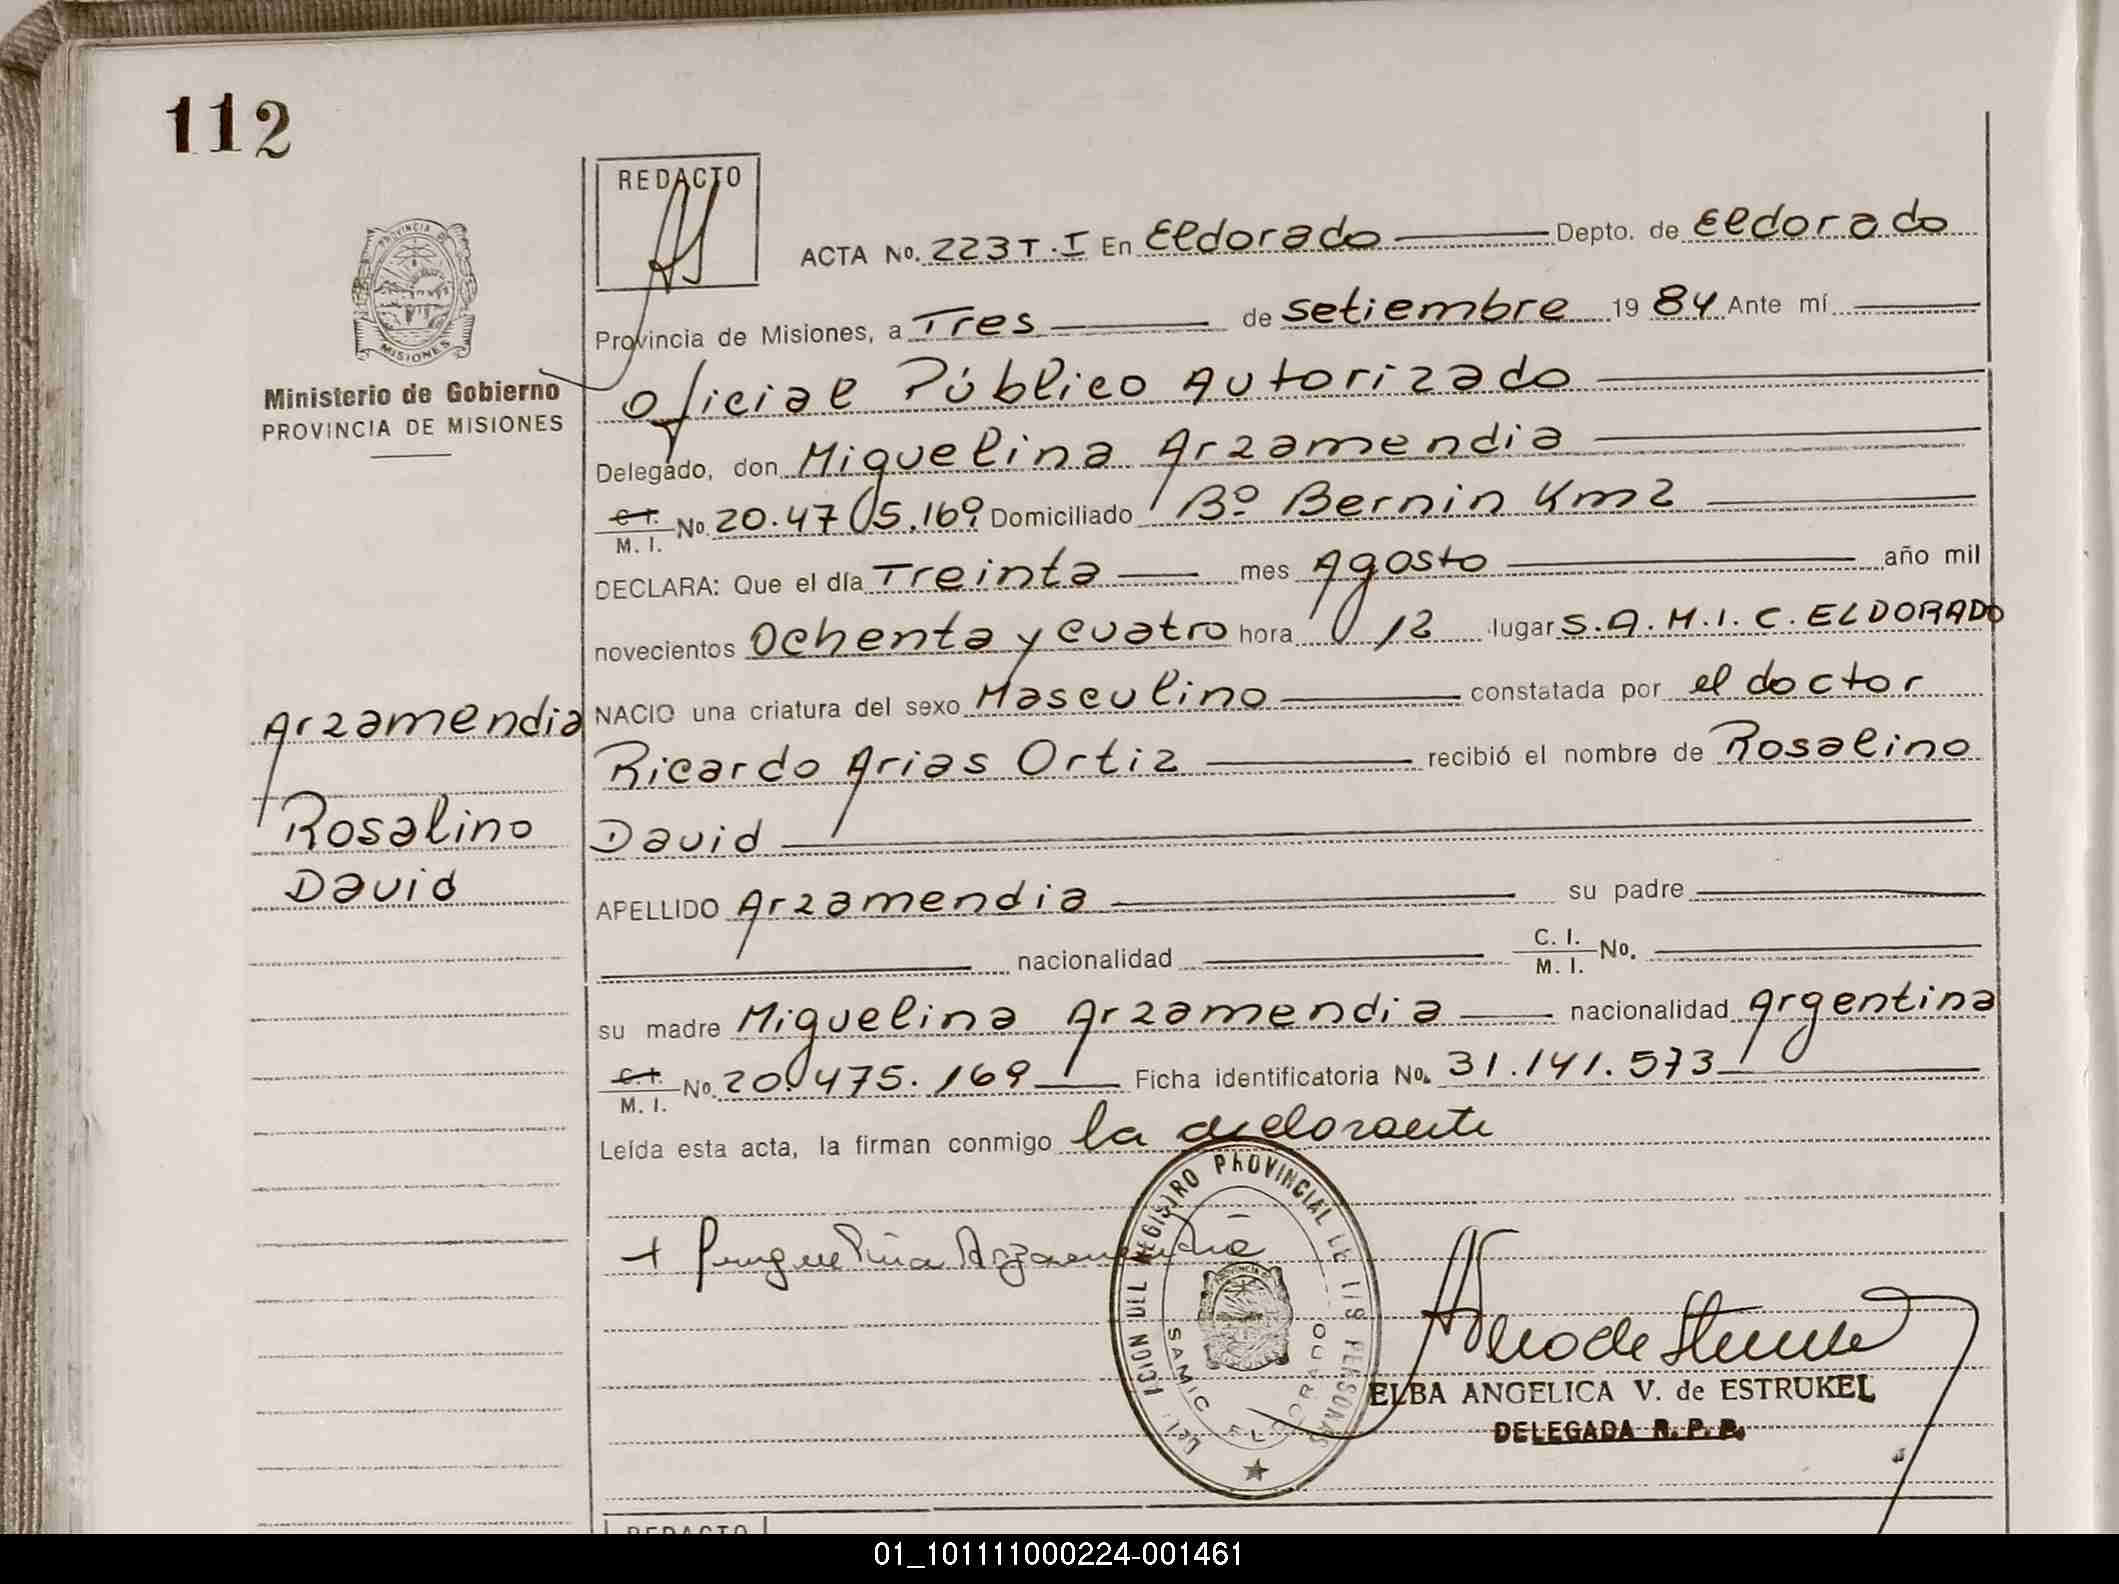 112
REDACTO
PROVINCIA DE
MISIONES
Ministerio de Gobierno
PROVINCIA DE MISIONES
ACTA No. 223 T. I En Eldorado Depto. de Eldorado
Provincia de Misiones, a Tres de setiembre 19 84 Ante mí
Oficial Público Autorizado
Delegado, don Miguelina Arzamendia
C. I. / M. I. No. 20.475.169 Domiciliado Bº Bernin Km 2
DECLARA: Que el día Treinta mes Agosto año mil
novecientos Ochenta y cuatro hora 12 lugar S.A.M.I.C. ELDORADO
NACIO una criatura del sexo Masculino constatada por el doctor
Ricardo Arias Ortiz recibió el nombre de Rosalino
David
APELLIDO Arzamendia su padre
nacionalidad C. I. / M. I. No.
su madre Miguelina Arzamendia nacionalidad Argentina
C. I. / M. I. No. 20.475.169 Ficha identificatoria No. 31.141.573
Leída esta acta, la firman conmigo la declarante
Arzamendia
Rosalino
David
+ Miguelina Arzamendia
REGISTRO PROVINCIAL DE LAS PERSONAS
SAMIC ELDORADO
ELBA ANGELICA V. de ESTRUKEL
DELEGADA R. P. P.
REDACTO
01_101111000224-001461